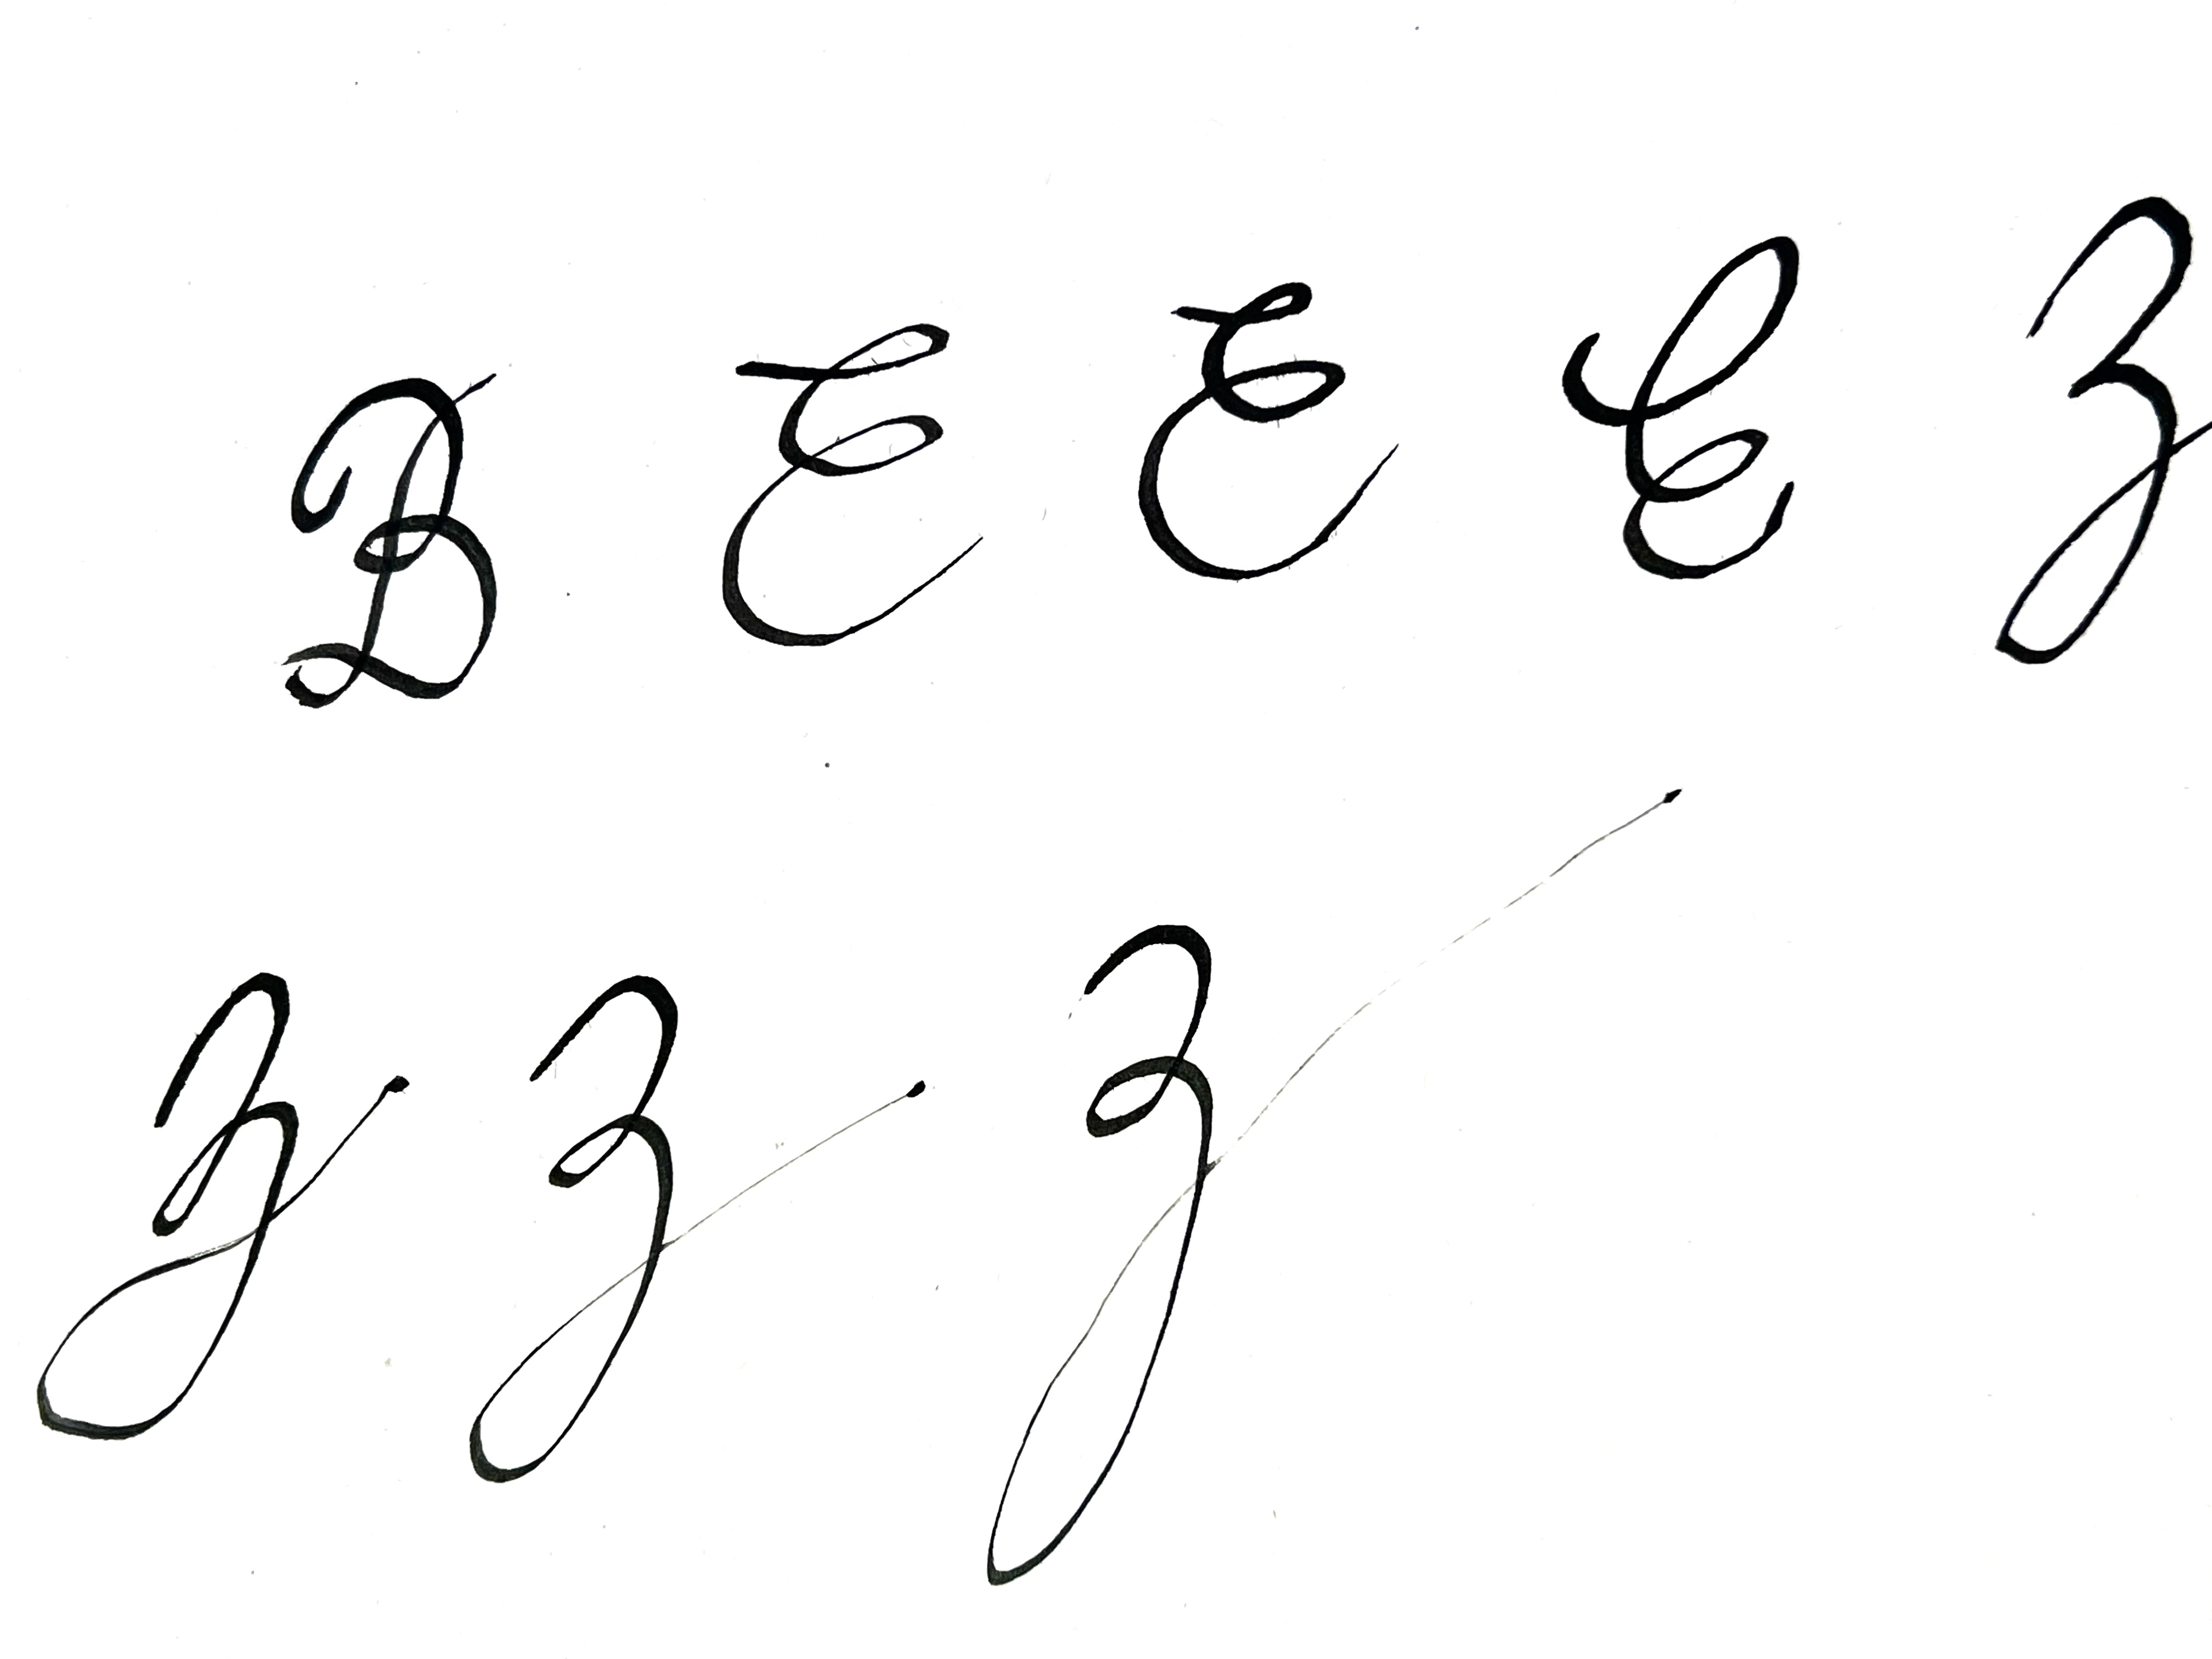 B E E E Z
Z Z Z